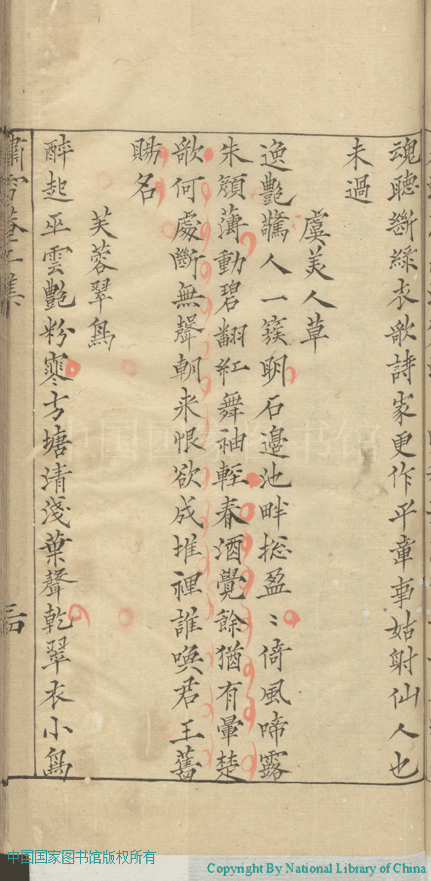 魂聽斷綵衣歌詩家更作平章事姑射仙人也
未過
虞美人草
逸艷驚人一簇明石邊池畔揔盈〻倚風啼露
朱顏薄動碧翻紅舞袖輕春酒覺餘猶有暈楚
歌何處斷無聲朝來恨欲成堆裡誰喚君王舊
賜名
芙蓉翠鳥
醉起巫雲艷粉寒方塘清淺葉聲乾翠衣小鳥
中国国家图书馆
中国国家图书馆版权所有
Copyright By National Library of China